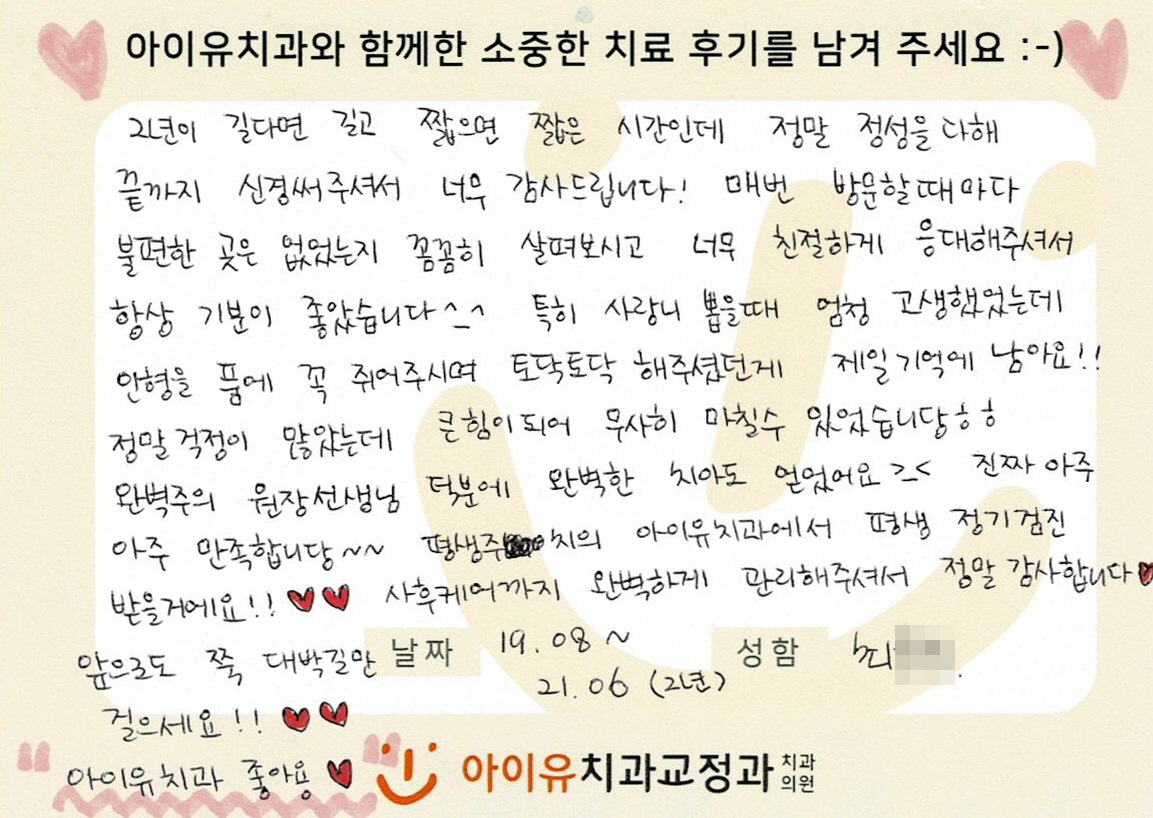 아이유치과와 함께한 소중한 치료 후기를 남겨 주세요 :-)
2년이 길다면 길고 짧으면 짧은 시간인데 정말 정성을 다해
끝까지 신경써주셔서 너무 감사드립니다! 매번 방문할때마다
불편한 곳은 없었는지 꼼꼼히 살펴보시고 너무 친절하게 응대해주셔서
항상 기분이 좋았습니다^_^ 특히 사랑니 뽑을때 엄청 고생했었는데
인형을 품에 꼭 쥐어주시며 토닥토닥 해주셨던게 제일 기억에 남아요!!
정말 걱정이 많았는데 큰힘이 되어 무사히 마칠수 있었습니당ㅎㅎ
완벽주의 원장선생님 덕분에 완벽한 치아도 얻었어요 >_< 진짜 아주
아주 만족합니당~~ 평생주치의 아이유치과에서 평생 정기검진
받을거에요!! ♥♥ 사후케어까지 완벽하게 관리해주셔서 정말 감사합니다♥
앞으로도 쭉 대박길만
걸으세요!! ♥♥
"아이유치과 좋아용 ♥"
날짜 19.08 ~
21.06 (2년)
성함 최
아이유치과교정과 치과
의원